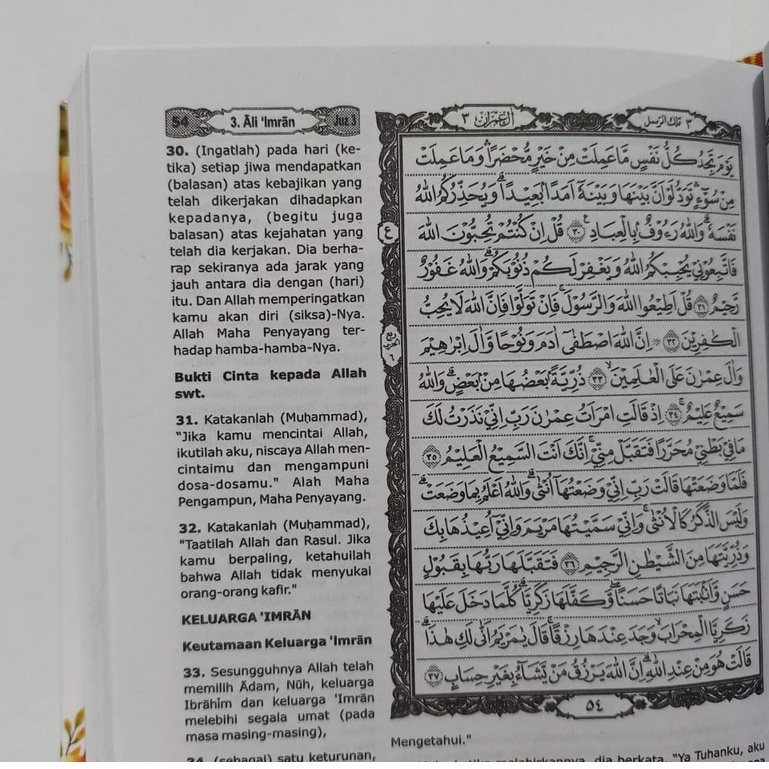 54
3. Āli 'Imrān
Juz 3
30. (Ingatlah) pada hari (ke-
tika) setiap jiwa mendapatkan
(balasan) atas kebajikan yang
telah dikerjakan dihadapkan
kepadanya, (begitu juga
balasan) atas kejahatan yang
telah dia kerjakan. Dia berha-
rap sekiranya ada jarak yang
jauh antara dia dengan (hari)
itu. Dan Allah memperingatkan
kamu akan diri (siksa)-Nya.
Allah Maha Penyayang ter-
hadap hamba-hamba-Nya.
Bukti Cinta kepada Allah
swt.
31. Katakanlah (Muḥammad),
"Jika kamu mencintai Allah,
ikutilah aku, niscaya Allah men-
cintaimu dan mengampuni
dosa-dosamu." Alah Maha
Pengampun, Maha Penyayang.
32. Katakanlah (Muḥammad),
"Taatilah Allah dan Rasul. Jika
kamu berpaling, ketahuilah
bahwa Allah tidak menyukai
orang-orang kafir."
KELUARGA 'IMRĀN
Keutamaan Keluarga 'Imrān
33. Sesungguhnya Allah telah
memilih Ādam, Nūh, keluarga
Ibrāhīm dan keluarga 'Imrān
melebihi segala umat (pada
masa masing-masing),
34. (sebagai) satu keturunan,
٣ تلك الرسل
اٰل عمرٰن ٣
يَوْمَ تَجِدُ كُلُّ نَفْسٍ مَّا عَمِلَتْ مِنْ خَيْرٍ مُّحْضَرًا ۛ وَمَا عَمِلَتْ
مِنْ سُوْۤءٍ ۛ تَوَدُّ لَوْ اَنَّ بَيْنَهَا وَبَيْنَهٗٓ اَمَدًاۢ بَعِيْدًا ۗ وَيُحَذِّرُكُمُ اللّٰهُ
نَفْسَهٗ ۗ وَاللّٰهُ رَءُوْفٌۢ بِالْعِبَادِ ࣖ ٣٠ قُلْ اِنْ كُنْتُمْ تُحِبُّوْنَ اللّٰهَ
فَاتَّبِعُوْنِيْ يُحْبِبْكُمُ اللّٰهُ وَيَغْفِرْ لَكُمْ ذُنُوْبَكُمْ ۗ وَاللّٰهُ غَفُوْرٌ
رَّحِيْمٌ ٣١ قُلْ اَطِيْعُوا اللّٰهَ وَالرَّسُوْلَ ۚ فَاِنْ تَوَلَّوْا فَاِنَّ اللّٰهَ لَا يُحِبُّ
الْكٰفِرِيْنَ ٣٢ ۞ اِنَّ اللّٰهَ اصْطَفٰٓى اٰدَمَ وَنُوْحًا وَّاٰلَ اِبْرٰهِيْمَ
وَاٰلَ عِمْرٰنَ عَلَى الْعٰلَمِيْنَۙ ٣٣ ذُرِّيَّةً ۢ بَعْضُهَا مِنْۢ بَعْضٍ ۗ وَاللّٰهُ
سَمِيْعٌ عَلِيْمٌۚ ٣٤ اِذْ قَالَتِ امْرَاَتُ عِمْرٰنَ رَبِّ اِنِّيْ نَذَرْتُ لَكَ
مَا فِيْ بَطْنِيْ مُحَرَّرًا فَتَقَبَّلْ مِنِّيْ ۚ اِنَّكَ اَنْتَ السَّمِيْعُ الْعَلِيْمُ ٣٥
فَلَمَّا وَضَعَتْهَا قَالَتْ رَبِّ اِنِّيْ وَضَعْتُهَآ اُنْثٰىۗ وَاللّٰهُ اَعْلَمُ بِمَا وَضَعَتْۗ
وَلَيْسَ الذَّكَرُ كَالْاُنْثٰى ۚ وَاِنِّيْ سَمَّيْتُهَا مَرْيَمَ وَاِنِّيْٓ اُعِيْذُهَا بِكَ
وَذُرِّيَّتَهَا مِنَ الشَّيْطٰنِ الرَّجِيْمِ ٣٦ فَتَقَبَّلَهَا رَبُّهَا بِقَبُوْلٍ
حَسَنٍ وَّاَنْۢبَتَهَا نَبَاتًا حَسَنًاۖ وَّكَفَّلَهَا زَكَرِيَّا ۗ كُلَّمَا دَخَلَ عَلَيْهَا
زَكَرِيَّا الْمِحْرَابَۙ وَجَدَ عِنْدَهَا رِزْقًا ۚ قَالَ يٰمَرْيَمُ اَنّٰى لَكِ هٰذَا ۗ
قَالَتْ هُوَ مِنْ عِنْدِ اللّٰهِ ۗ اِنَّ اللّٰهَ يَرْزُقُ مَنْ يَّشَاۤءُ بِغَيْرِ حِسَابٍ ٣٧
٥٤
Mengetahui."
melahirkannya, dia berkata, "Ya Tuhanku, aku